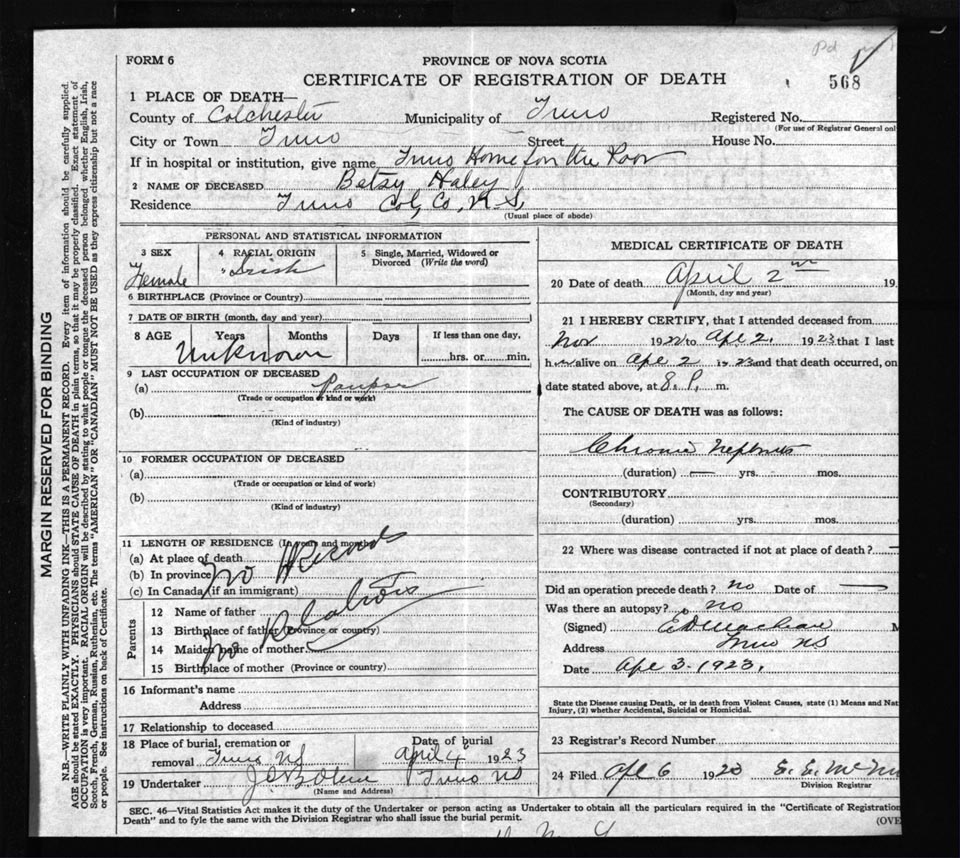 Pd
FORM 6
PROVINCE OF NOVA SCOTIA
CERTIFICATE OF REGISTRATION OF DEATH
568
1 PLACE OF DEATH—
County of Colchester Municipality of Truro Registered No.
(For use of Registrar General onl
City or Town Truro Street House No.
If in hospital or institution, give name Truro Home for the Poor
2 NAME OF DECEASED Betsy Haley
Residence Truro Col, Co, N.S,
(Usual place of abode)
PERSONAL AND STATISTICAL INFORMATION
3 SEX
Female
4 RACIAL ORIGIN
Irish
5 Single, Married, Widowed or
Divorced (Write the word)
6 BIRTHPLACE (Province or Country)
7 DATE OF BIRTH (month, day and year)
8 AGE Years Months Days If less than one day,
Unknown hrs. or min.
9 LAST OCCUPATION OF DECEASED
(a) Pauper
(Trade or occupation or kind or work)
(b)
(Kind of industry)
10 FORMER OCCUPATION OF DECEASED
(a)
(Trade or occupation or kind of work)
(b)
(Kind of industry)
11 LENGTH OF RESIDENCE (In years and months)
(a) At place of death
(b) In province
(c) In Canada (if an immigrant)
No Record
Parents
12 Name of father
13 Birthplace of father (Province or country)
14 Maiden name of mother
15 Birthplace of mother (Province or country)
No Relatives
16 Informant's name
Address
17 Relationship to deceased
18 Place of burial, cremation or Date of burial
removal Truro N.S April 4 1923
19 Undertaker Truro NS
(Name and Address)
MEDICAL CERTIFICATE OF DEATH
20 Date of death April 2
(Month, day and year)
19
21 I HEREBY CERTIFY, that I attended deceased from
Nov 1922 to Apl 2, 1923 that I last
h er alive on Apl 2 1923 and that death occurred, on
date stated above, at 8 P. m.
The CAUSE OF DEATH was as follows:
Chronic Nephritis
(duration) — yrs. mos.
CONTRIBUTORY
(Secondary)
(duration) yrs. mos.
22 Where was disease contracted if not at place of death? —
Did an operation precede death? no Date of —
Was there an autopsy? no
(Signed) M
Address Truro NS
Date Apl 3. 1923.
State the Disease causing Death, or in death from Violent Causes, state (1) Means and Nat
Injury, (2) whether Accidental, Suicidal or Homicidal.
23 Registrar's Record Number
24 Filed Apl 6 1923
Division Registrar
SEC. 46—Vital Statistics Act makes it the duty of the Undertaker or person acting as Undertaker to obtain all the particulars required in the "Certificate of Registration
Death" and to fyle the same with the Division Registrar who shall issue the burial permit.
(OVE
MARGIN RESERVED FOR BINDING
N.B.—WRITE PLAINLY WITH UNFADING INK—THIS IS A PERMANENT RECORD. Every item of information should be carefully supplied.
AGE should be stated EXACTLY. PHYSICIANS should STATE CAUSE OF DEATH in plain terms, so that it may be properly classified. Exact statement of
OCCUPATION is very important. RACIAL ORIGIN will be described by stating to what people or tongue the deceased person belonged whether English, Irish,
Scotch, French, German, Russian, Ruthenian, etc. The terms "AMERICAN" OR "CANADIAN" MUST NOT BE USED as they express citizenship but not a race
or people. See instructions on back of Certificate.